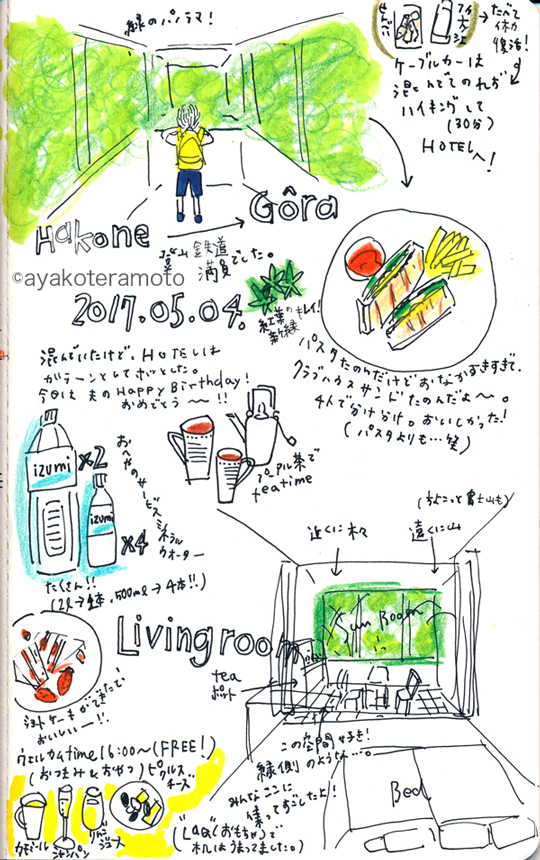 緑のパノラマ！
せんべい
アイスティー
→たべて
休み
復活！
ケーブルカーは
混んでてのれず
ハイキングして
(30分)
HOTELへ！
Hakone → Gôra
鉄道
満員でした。
©ayakoteramoto
2017.05.04.
紅葉の
新緑
キレイ！
混んでいたけど、HOTELは
ガラーンとしてましたとした。
今日は夫のHappy Birthday！
おめでとう〜！！
パスタたのんだけどおなかすきすぎて、
クラブハウスサンドたのんだよ〜。
4人で分け分け。おいしかった！
(パスタよりも…笑)
izumi ×2
izumi ×4
おへやのサービス
ミネラル
ウォーター
たくさん！！
(2L→2本、500ml→4本!!)
プーアル茶で
teatime
(ちょこっと富士山も)
近くに木々
遠くに山
Sun Room
Living room
tea
ポット
ショートケーキができたて
おいしい〜！！
この空間好き！
縁側のような…。
みんなここに
集ってすごしたよ！
Bed
ウェルカムtime 16:00〜(FREE！)
(おつまみ&おやつ)
ピクルス
チーズ
カモミール
シャンパン
りんご
ジュース
("LaQ"(おもちゃ)で
机はうまってました。)